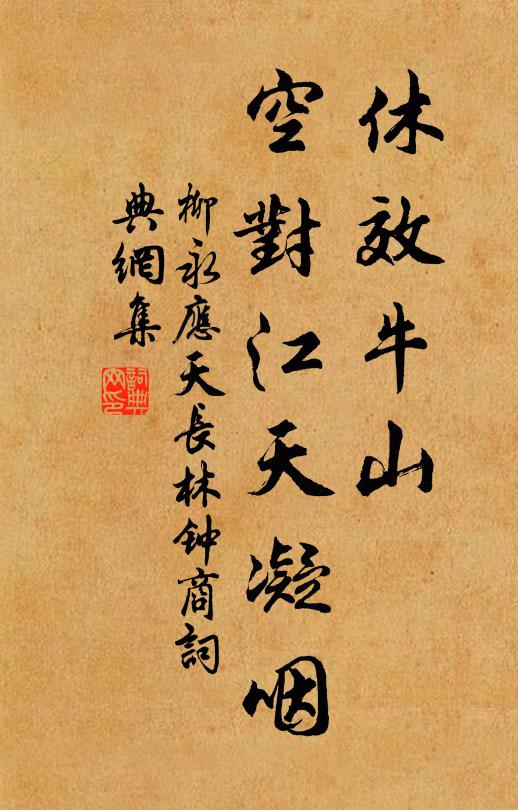 休效牛山
空對江天凝咽
柳永應天長林钟商詞
典網集
詞典
网印